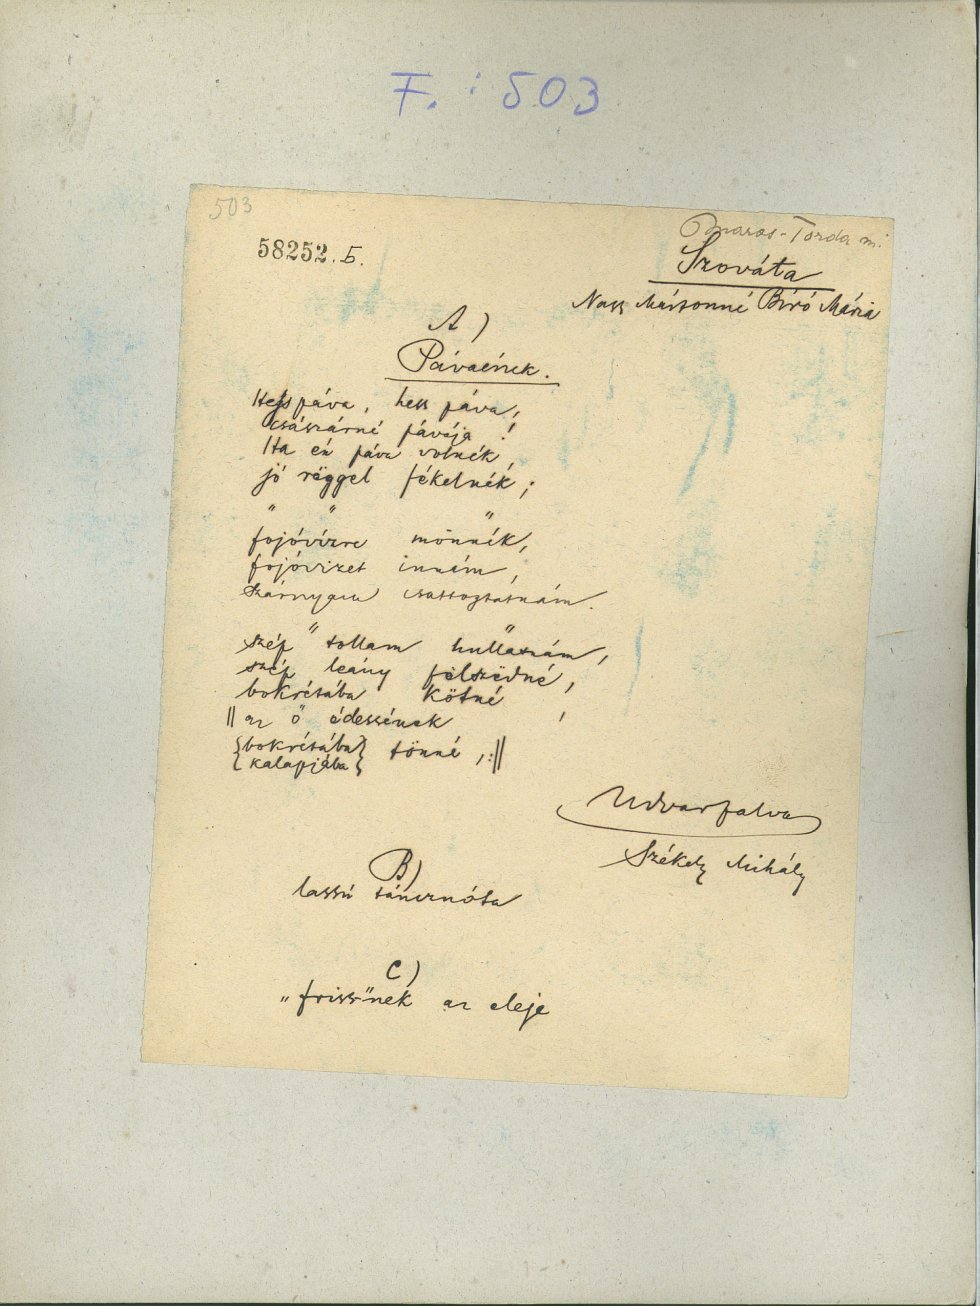 F. : 503
503
58252. b.
Maros-Torda m.
Szováta
Nagy Mártonné Bíró Mária
A)
Pávaének.
Hess páva, hess páva,
császárné pávája!
Ha én páva volnék,
jó rëggel fékelnék;
" " "
fojóvízre mönnék,
fojóvizet innám,
szárnyam csattogtatnám.
szép tollam hullatnám,
szép leány fëlszëdné,
bokrétába kötné,
|| az ő édessének
{bokrétába}
{kalapjába} tönné, :||
Udvarfalva
Székely Mihály
B)
lassú táncznóta
C)
„friss"nek az eleje